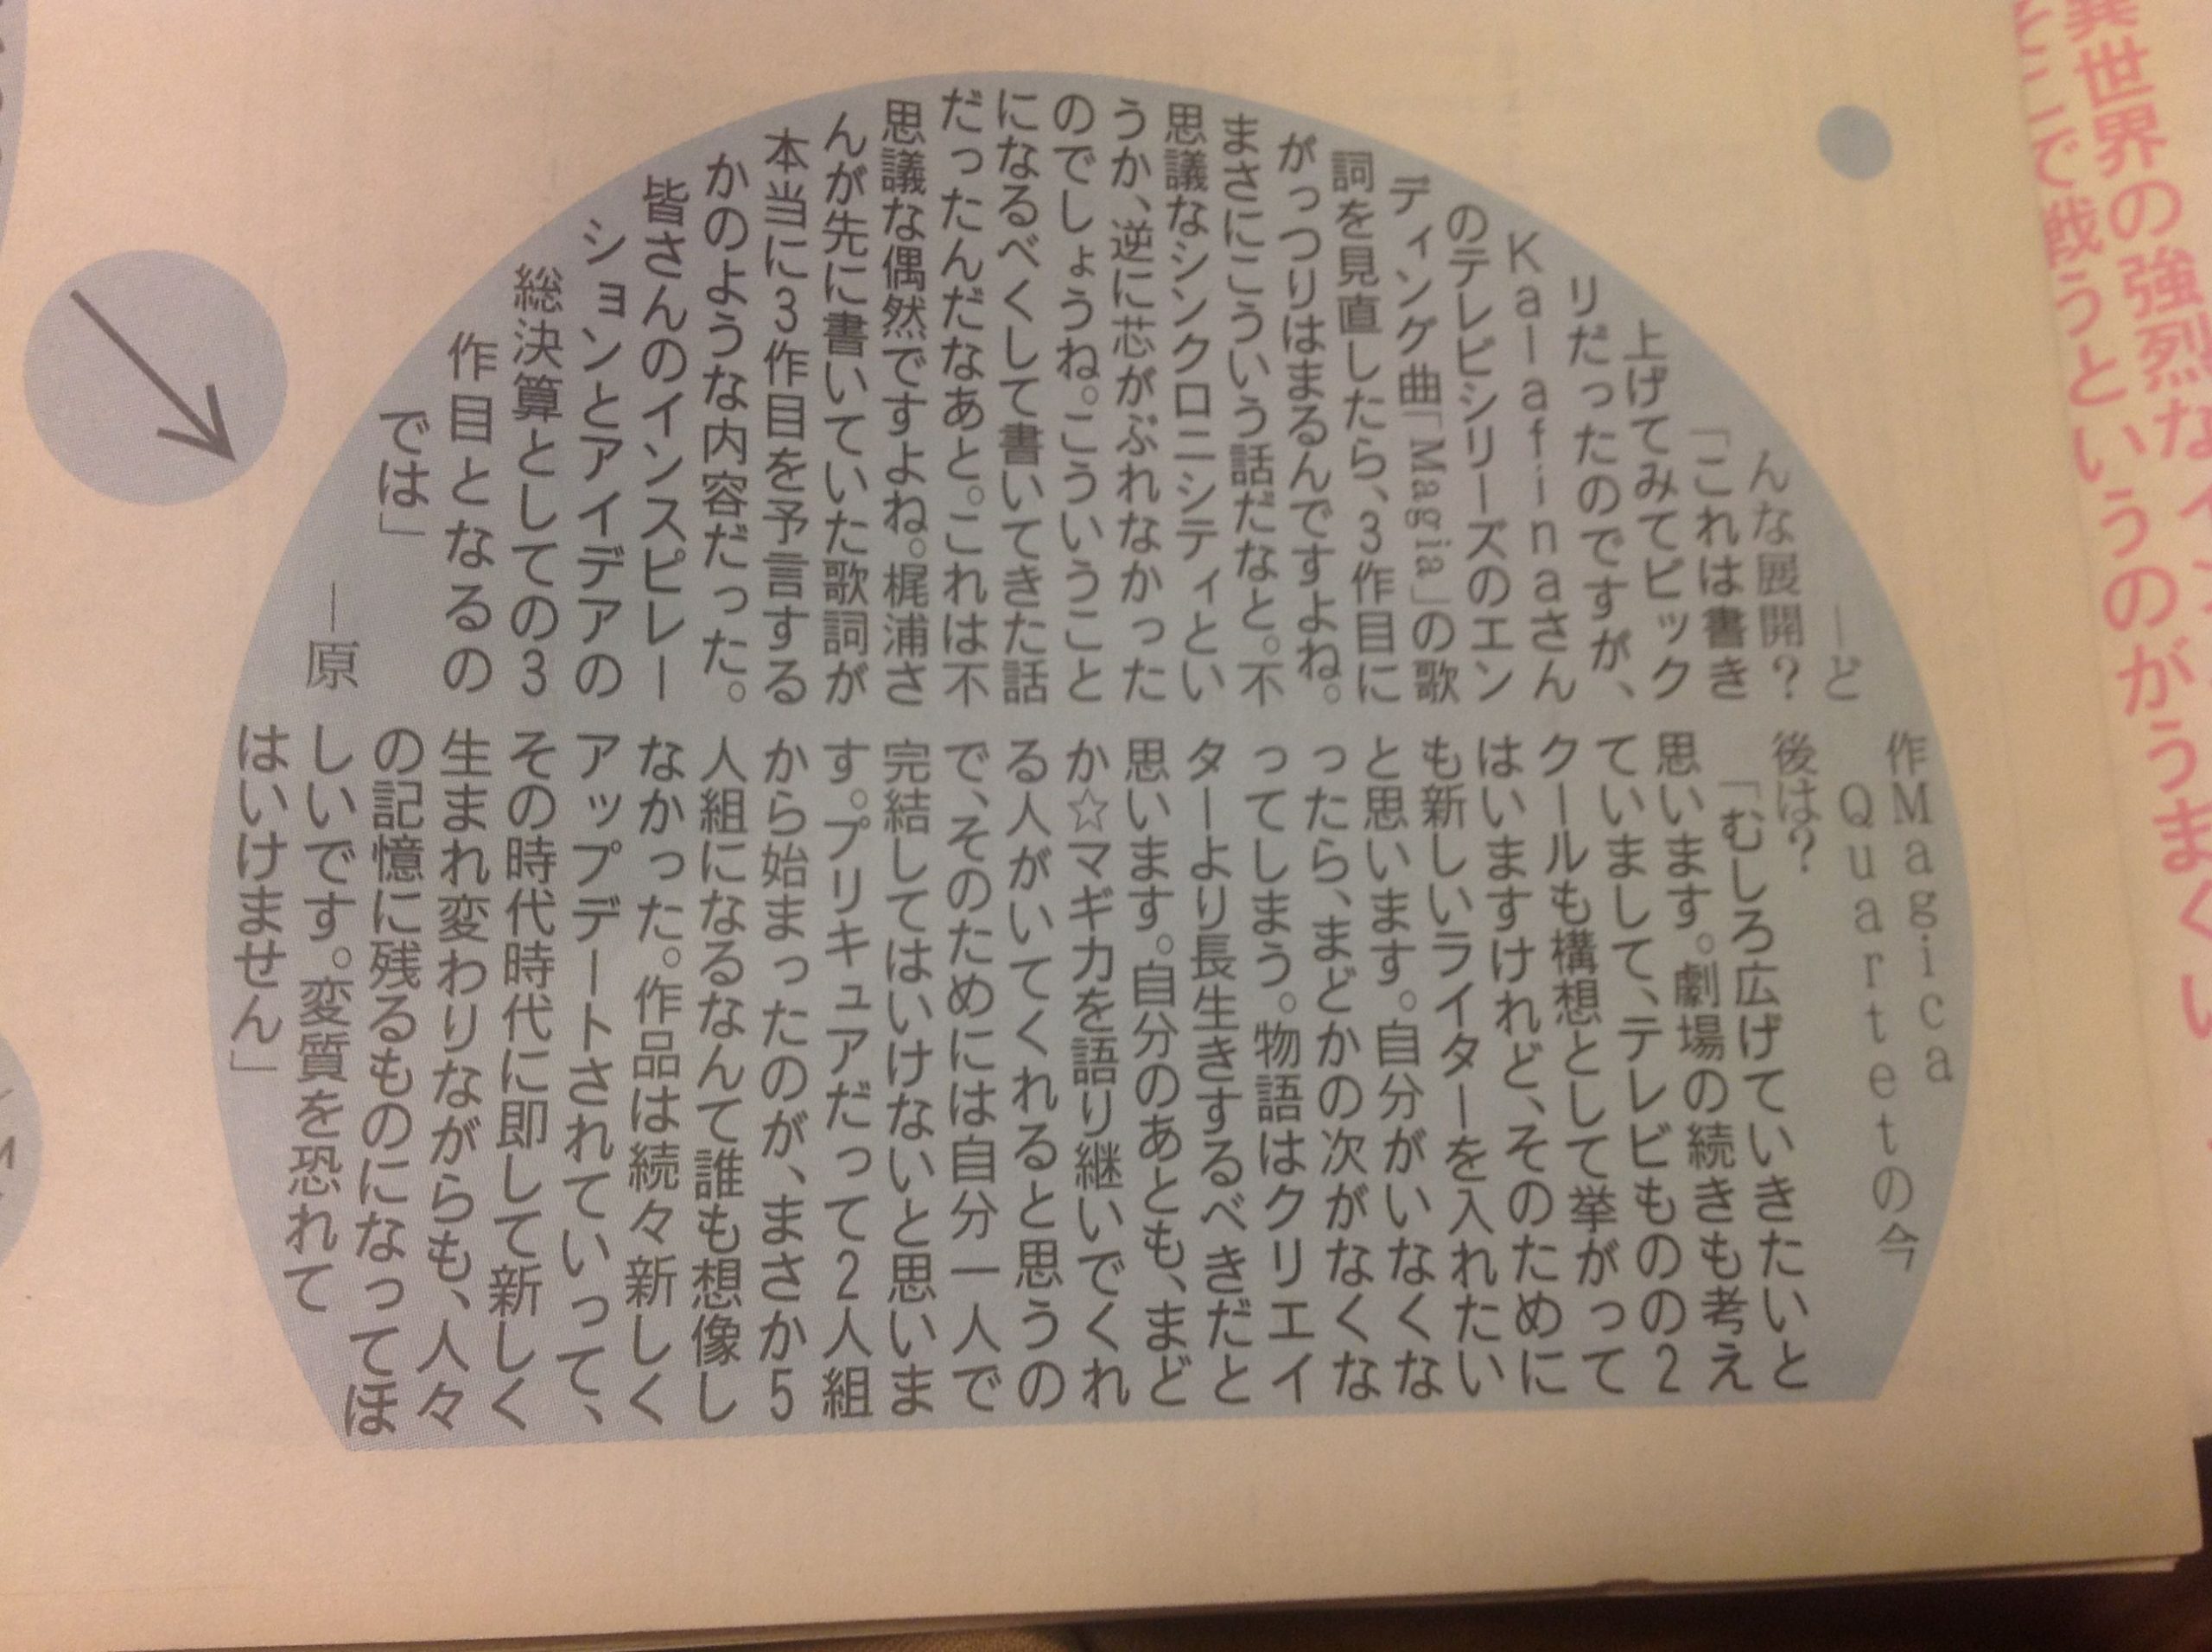 世界の強烈な
こで戦うというのがうまくい
―ど
んな展開?
「これは書き
上げてみてビック
リだったのですが、
Kalafinaさん
のテレビシリーズのエン
ディング曲「Magia」の歌
詞を見直したら、3作目に
がっつりはまるんですよね。
まさにこういう話だなと。不
思議なシンクロニシティとい
うか、逆に芯がぶれなかった
のでしょうね。こういうこと
になるべくして書いてきた話
だったんだなあと。これは不
思議な偶然ですよね。梶浦さ
んが先に書いていた歌詞が
本当に3作目を予言する
かのような内容だった。
皆さんのインスピレー
ションとアイデアの
総決算としての3
作目となるの
では」
―原
作Magica
Quartetの今
後は?
「むしろ広げていきたいと
思います。劇場の続きも考え
ていまして、テレビものの2
クールも構想として挙がって
はいますけれど、そのために
も新しいライターを入れたい
と思います。自分がいなくな
ったら、まどかの次がなくな
ってしまう。物語はクリエイ
ターより長生きするべきだと
思います。自分のあとも、まど
か☆マギカを語り継いでくれ
る人がいてくれると思うの
で、そのためには自分一人で
完結してはいけないと思いま
す。プリキュアだって2人組
から始まったのが、まさか5
人組になるなんて誰も想像し
なかった。作品は続々新しく
アップデートされていって、
その時代時代に即して新しく
生まれ変わりながらも、人々
の記憶に残るものになってほ
しいです。変質を恐れて
はいけません」